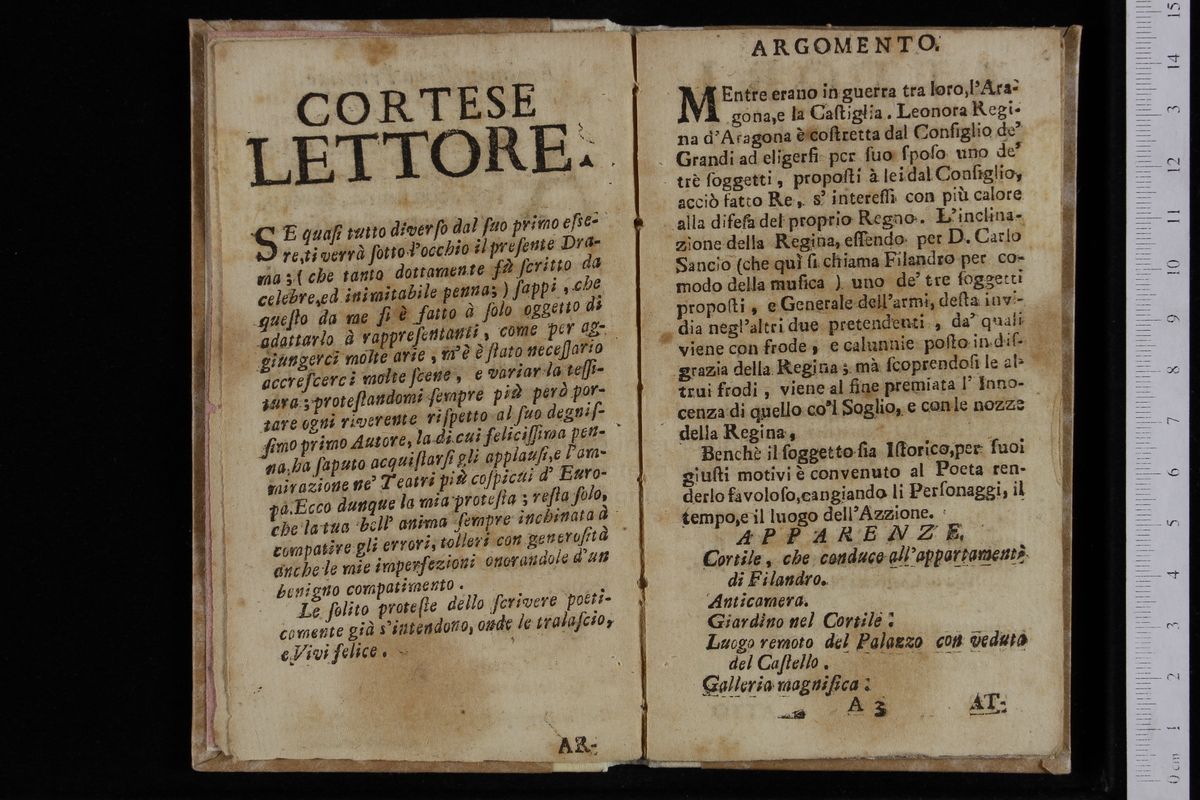 CORTESE
LETTORE.
SE quaſi tutto diverſo dal ſuo primo eſſe-
re, ti verrà ſotto l'occhio il preſente Dra-
ma; ( che tanto dottamente fù ſcritto da
celebre, ed inimitabile penna; ) ſappi, che
queſto da me ſi è fatto à ſolo oggetto di
adattarlo à rappreſentanti, come per ag-
giungerci molte arie, m'è è ſtato neceſſario
accreſcerci molte ſcene, e variar la teſſi-
tura; proteſtandomi ſempre più però por-
tare ogni riverente riſpetto al ſuo degniſ-
ſimo primo Autore, la di cui feliciſſima pen-
na, ha ſaputo acquiſtarſi gli applauſi, e l'am-
mirazione ne' Teatri più coſpicui d' Euro-
pa. Ecco dunque la mia proteſta; reſta ſolo,
che la tua bell' anima ſempre inchinata à
compatire gli errori, tolleri con generoſità
anche le mie imperfezioni onorandole d'un
benigno compatimento.
Le ſolito proteſte dello ſcrivere poeti-
comente già s'intendono, onde le tralaſcio,
e Vivi felice.
AR-
ARGOMENTO.
MEntre erano in guerra tra loro, l'Ara-
gona, e la Caſtiglia. Leonora Regi-
na d'Aragona è coſtretta dal Conſiglio de'
Grandi ad eligerſi per ſuo ſpoſo uno de'
trè ſoggetti, propoſti à lei dal Conſiglio,
acciò fatto Re, s' intereſſi con più calore
alla difeſa del proprio Regno. L'inclina-
zione della Regina, eſſendo per D. Carlo
Sancio (che quì ſi chiama Filandro per co-
modo della muſica ) uno de' tre ſoggetti
propoſti, e Generale dell'armi, deſta invi-
dia negl'altri due pretendenti, da' quali
viene con frode, e calunnie poſto in diſ-
grazia della Regina; mà ſcoprendoſi le al-
trui frodi, viene al fine premiata l' Inno-
cenza di quello co'l Soglio, e con le nozze
della Regina,
Benchè il ſoggetto ſia Iſtorico, per ſuoi
giuſti motivi è convenuto al Poeta ren-
derlo favoloſo, cangiando li Perſonaggi, il
tempo, e il luogo dell'Azzione.
APPARENZE.
Cortile, che conduce all'appartamenti
di Filandro.
Anticamera.
Giardino nel Cortile:
Luogo remoto del Palazzo con veduta
del Caſtello.
Galleria magnifica:
A 3
AT-
0 cm 1 2 3 4 5 6 7 8 9 10 11 12 13 14 15